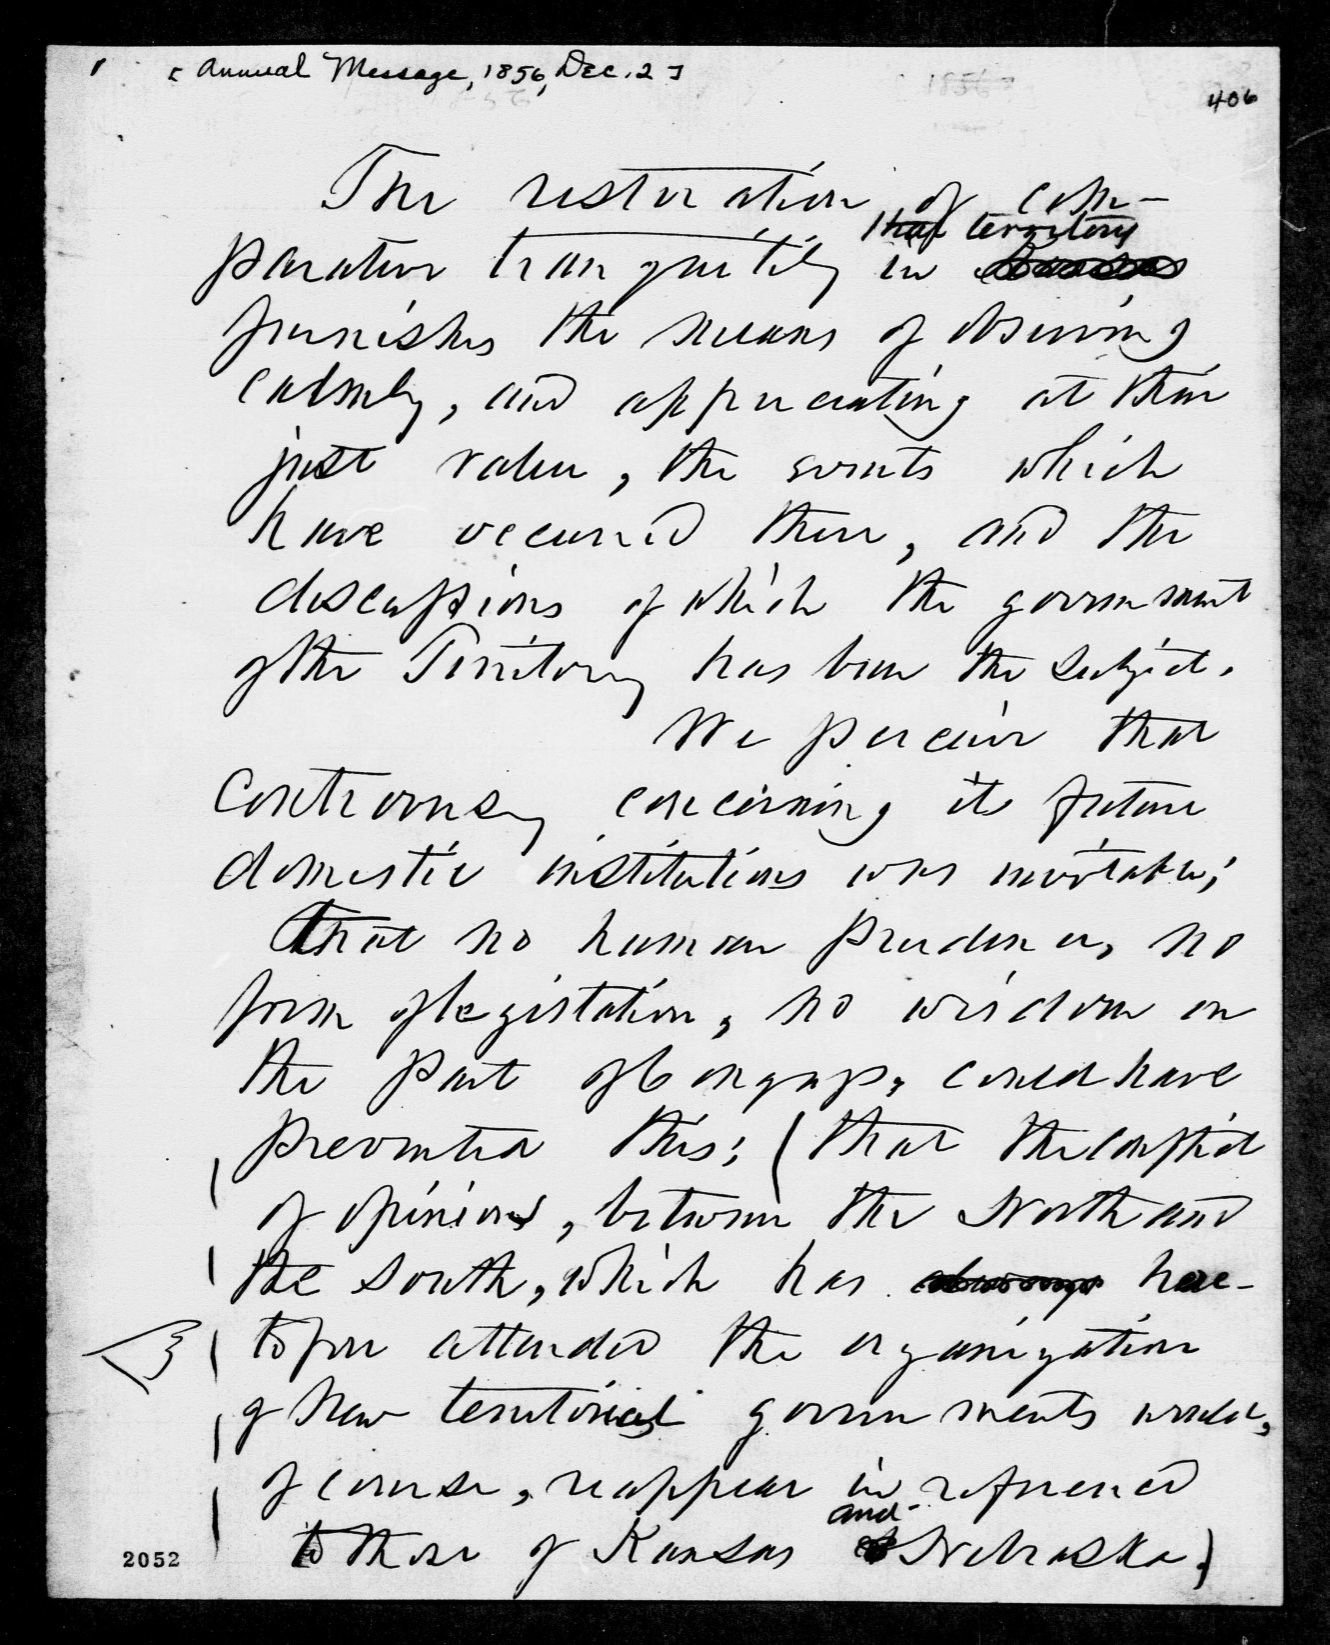 [Annual Message, 1856, Dec. 2]
1856
406
The restoration of com-
that territory
parative tranquility in
furnishes the means of observing
calmly, and appreciating at their
just value, the events which
have occurred there, and the
discussions of which the government
of the Territory has been the subject.
We perceive that
controversy concerning its future
domestic institutions was inevitable;
that no human prudence, no
form of legislation, no wisdom on
the part of Congress, could have
prevented this; (that the conflict
of opinions, between the North and
the South, which has always here-
tofore attended the organization
of new territorial governments would,
of course, reappear in reference
and
to those of Kansas Nebraska.)
2052